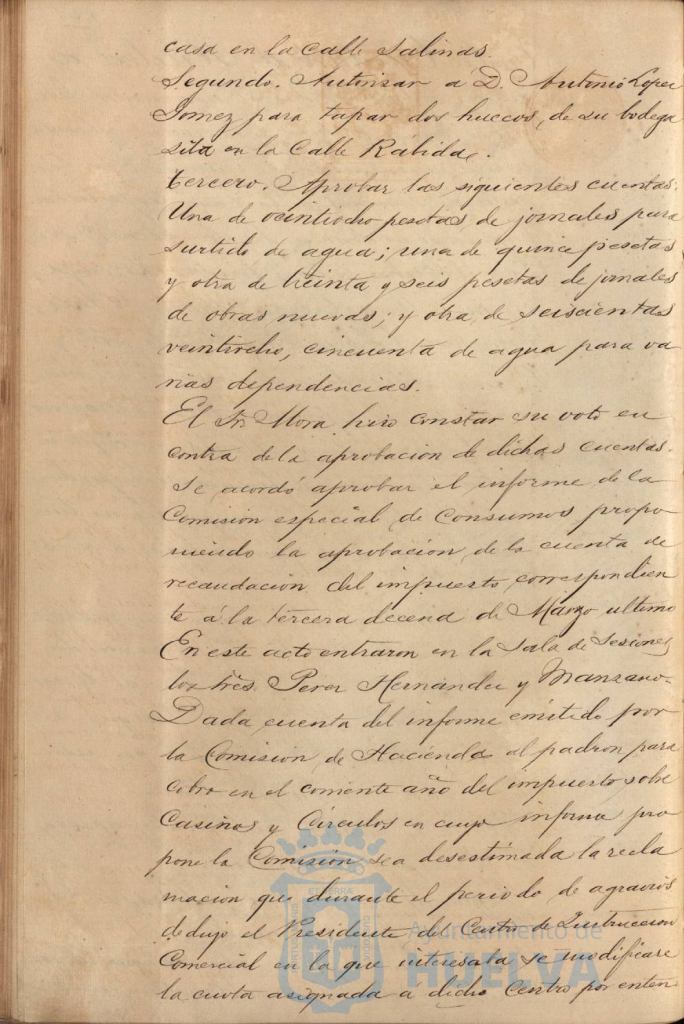 casa en la calle Salinas.
Segundo. Autorizar a D. Antonio Lopez
Gomez para tapar dos huecos, de su bodega
sita en la Calle Rábida.
tercero. Aprobar las siguientes cuentas:
Una de veintiocho pesetas de jornales para
surtido de agua; una de quince pesetas
y otra de treinta y seis pesetas de jornales
de obras nuevas; y otra de seiscientas
veintiocho, cincuenta de agua para va
rias dependencias.
El Sr. Mora hizo constar su voto en
contra de la aprobacion de dichas cuentas.
Se acordó aprobar el informe de la
Comision especial de Consumos propo
niendo la aprobacion de la cuenta de
recaudacion del impuesto correspondien
te á la tercera decena de Marzo ultimo
En este acto entraron en la Sala de Sesiones
los Sres Perez Hernandez y Manzano.
Dada cuenta del informe emitido por
la Comision de Hacienda al padron para
cobro en el corriente año del impuesto sobre
Casinos y Circulos en cuyo informe pro
pone la Comision sea desestimada la recla
macion que durante el periodo de agravios
dedujo el Presidente del Centro de Instruccion
Comercial en la que interesaba se modificare
la cuota asignada a dicho Centro por enten
Ayuntamiento de
HUELVA